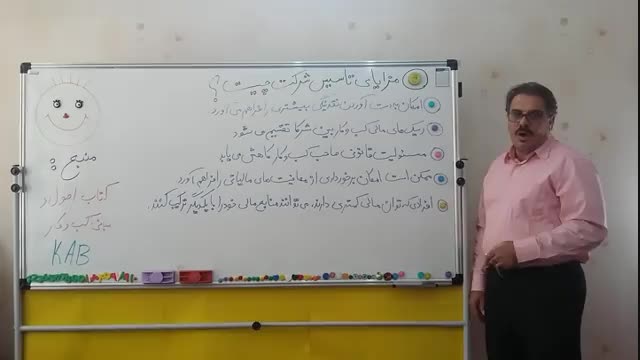 مزایای تاسیس شرکت چیست ؟
امکان بدست آوردن نقدینگی بیشتری را فراهم می آورد
ریسک های مالی کسب و کار بین شرکا تقسیم می شود
مسئولیت قانونی صاحب کسب و کار کاهش می یابد
ممکن است امکان برخورداری از معافیت های مالیاتی را فراهم آورد
افرادی که توان مالی کمتری دارند، می توانند منابع مالی خود را با یکدیگر ترکیب کنند.
منبع :
کتاب اصول و
مبانی کسب و کار
KAB